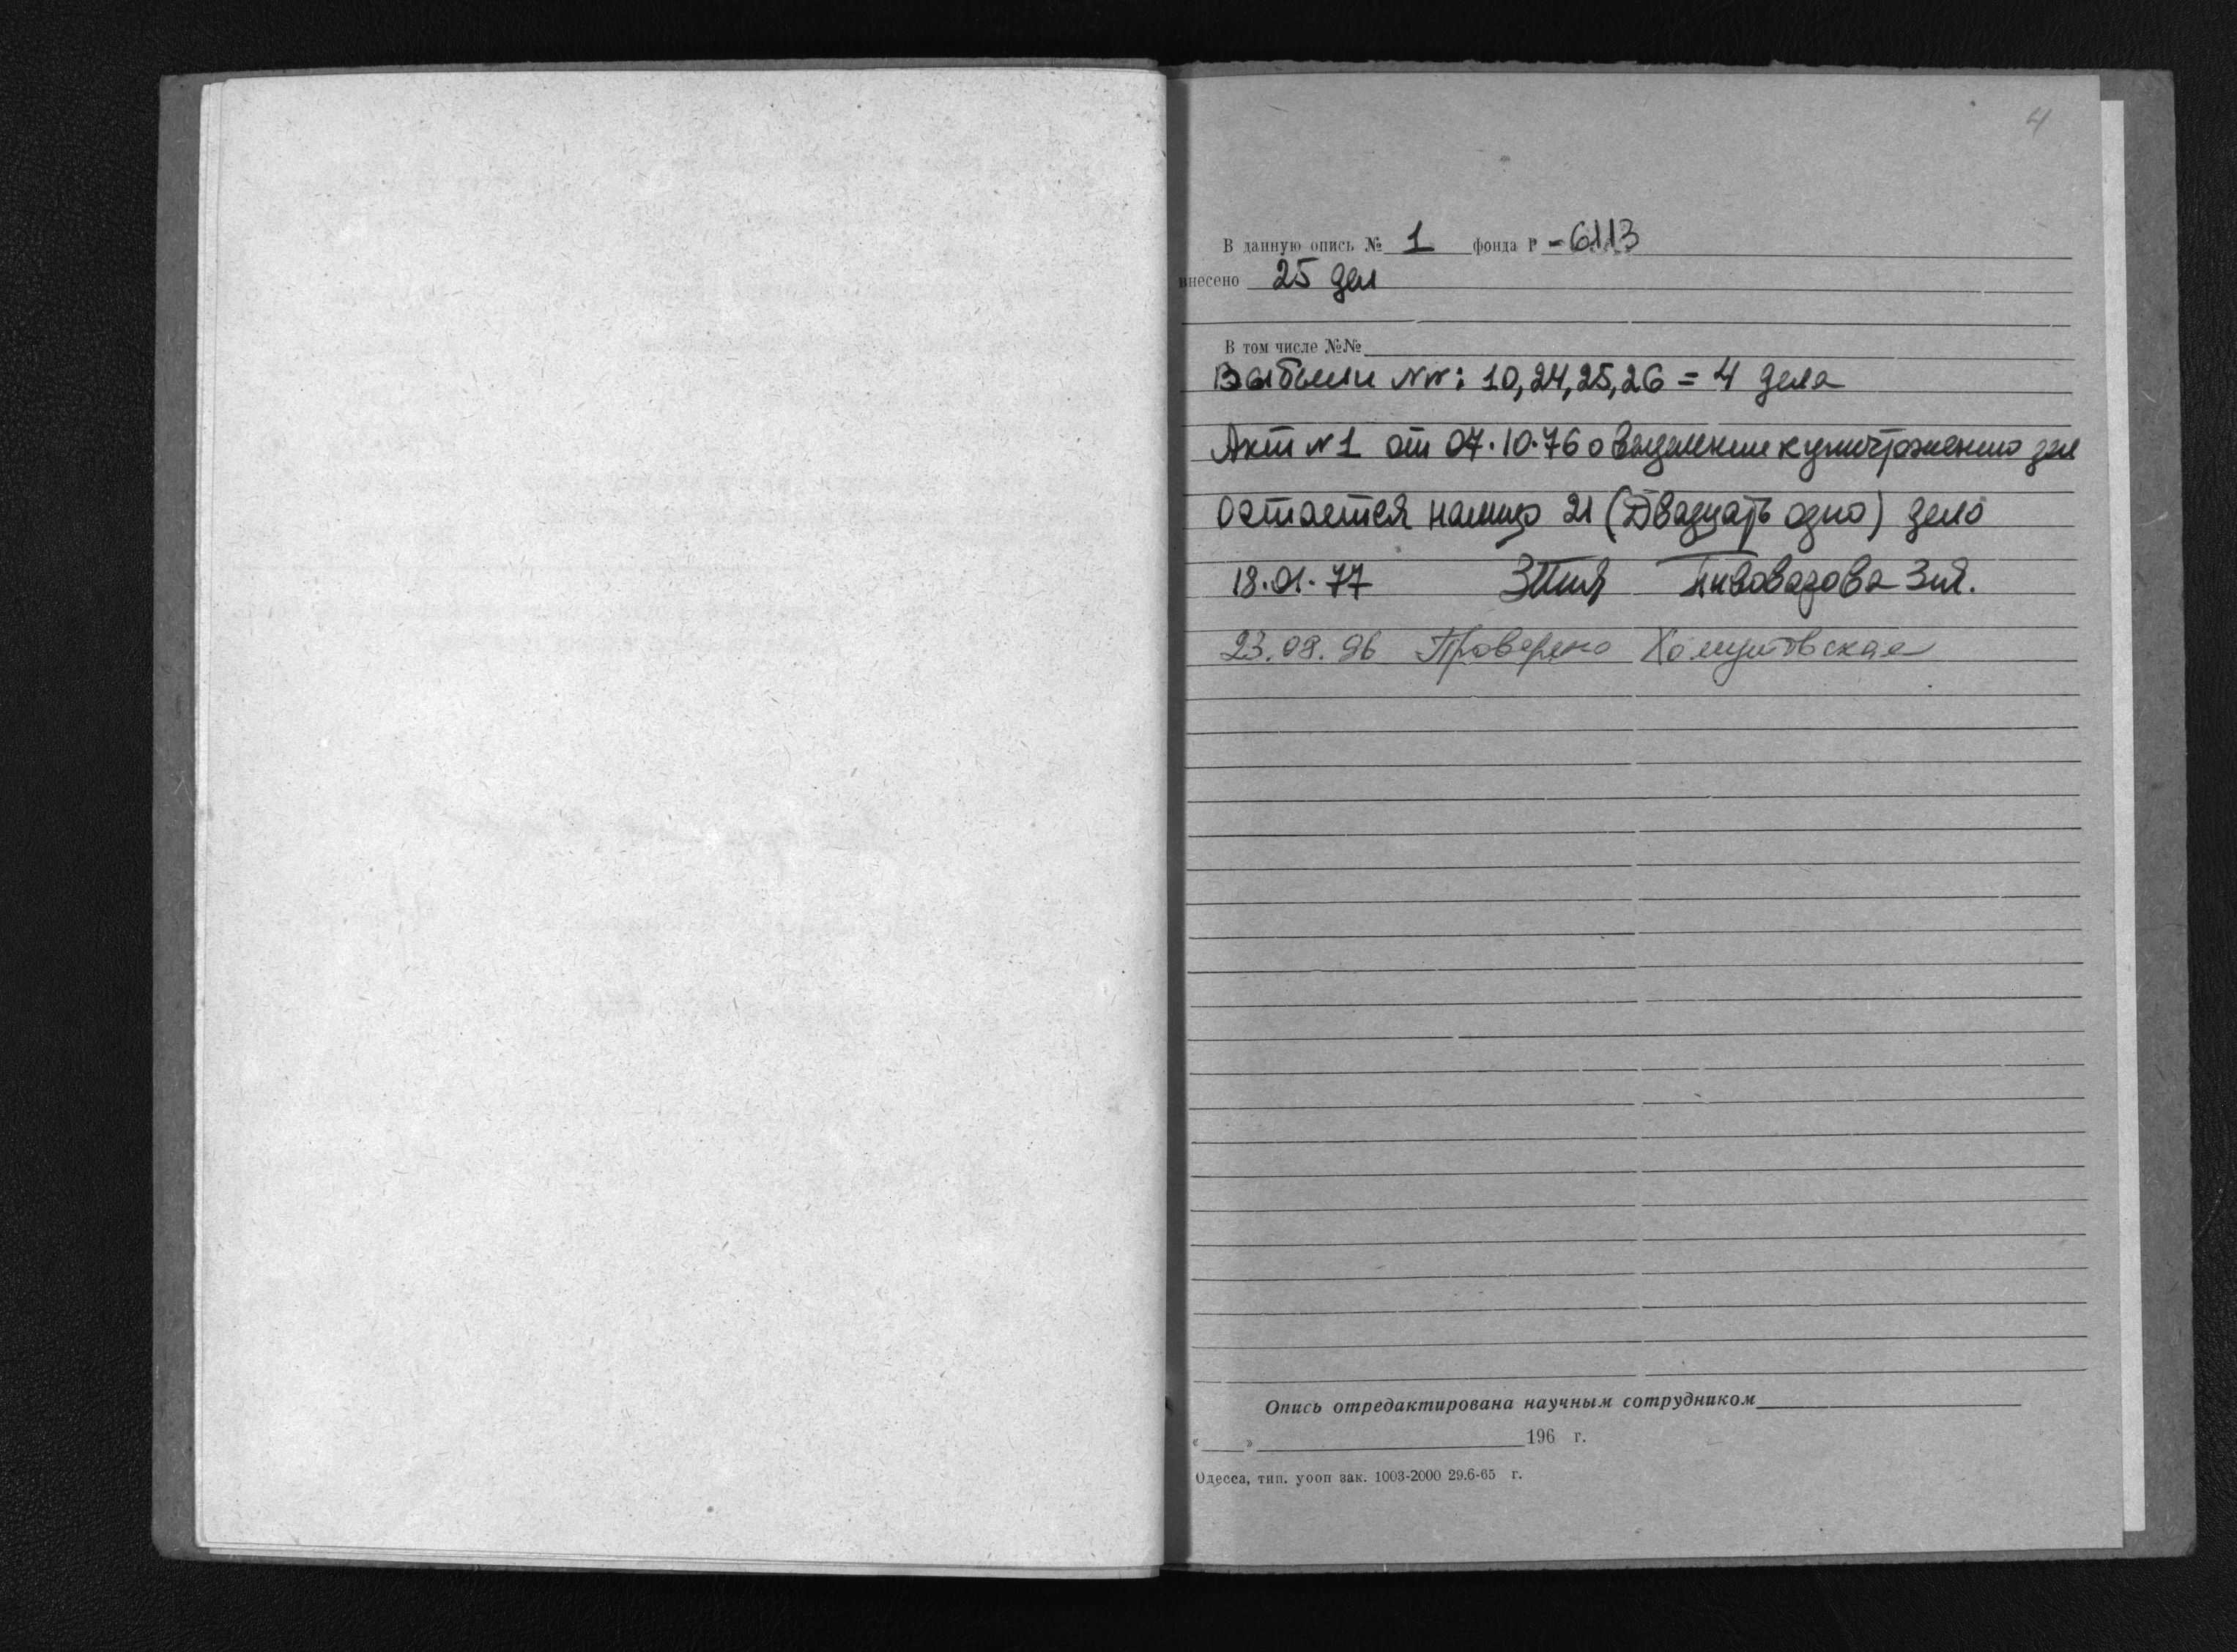 4
В данную опись № 1 фонда Р -6113
внесено 25 дел
В том числе №№
Выбыли №№: 10,24,25,26 = 4 дела
Акт №1 от 07.10.76 о выделении к уничтожению дел
Остается налицо 21 (Двадцать одно) дело
18.01.77 Пивоварова З.Я.
23.08.96 Проверено Хомутовская
Опись отредактирована научным сотрудником
« » 196 г.
Одесса, тип. уооп зак. 1003-2000 29.6-65 г.